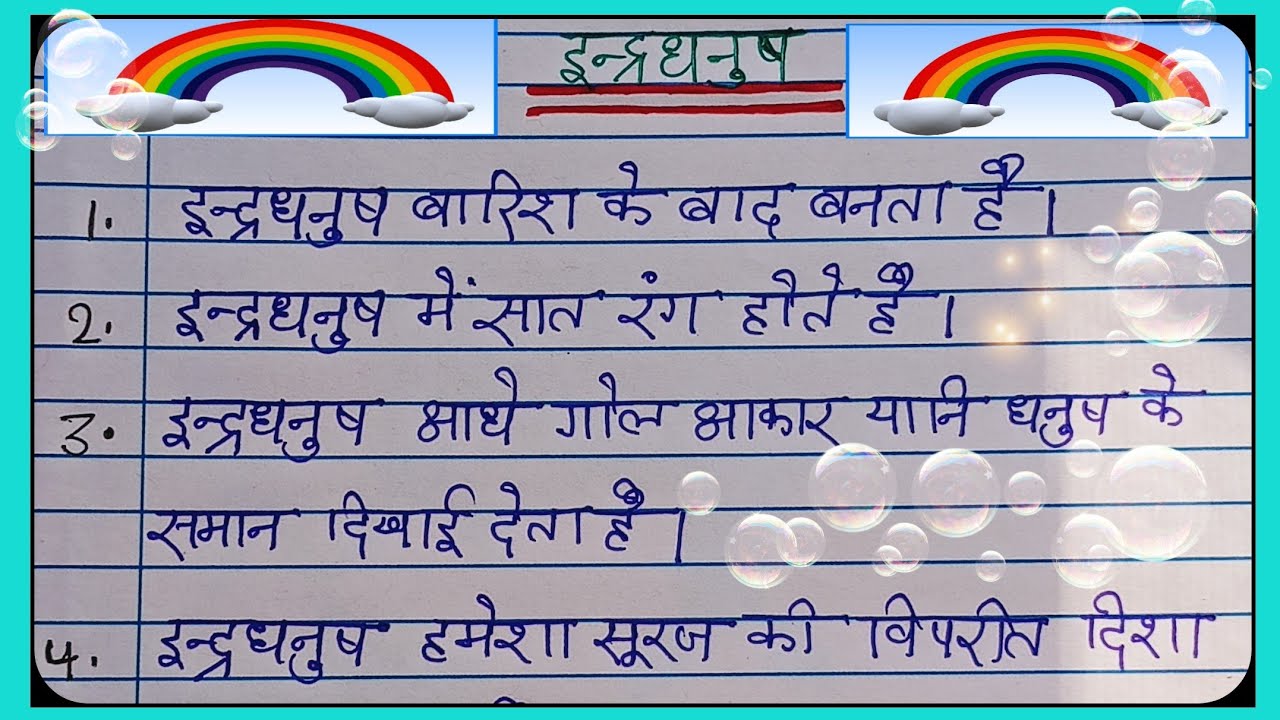 इन्द्रधनुष
1. इन्द्रधनुष बारिश के बाद बनता है।
2. इन्द्रधनुष में सात रंग हौते है।
3. इन्द्रधनुष आधे गोल आकार यानि धनुष के
समान दिखाई देता है।
4. इन्द्रधनुष हमेशा सूरज की विपरीत दिशा